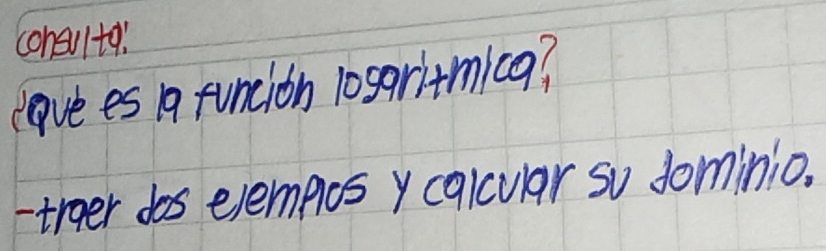 consulta:
¿Qué es la función logaritmica?
-traer dos ejemplos y calcular su dominio.